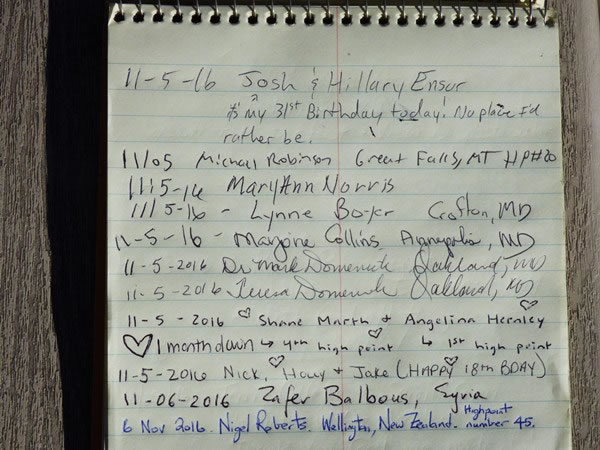 11-5-16 Josh & Hillary Ensor
It's my 31st Birthday today! No place I'd
rather be.
11/05 Michael Robinson Great Falls, MT HP#20
11/5-16 MaryAnn Norris
11/5-16 - Lynne Boyer Crofton, MD
11-5-16 - Marjorie Collins Annapolis, MD
11-5-2016 Dr Mark Domenick Oakland, MD
11-5-2016 Teresa Domenick Oakland, MD
11-5-2016 ♡ Shane Marth + Angelina Hernley ♡
♡ 1 month down ↳ 4th high point ♡ ↳ 1st high point
11-5-2016 Nick, ♡ Holly + Jake (HAPPY ♡ 18th BDAY)
11-06-2016 Zafer Balbous, Syria
6 Nov 2016. Nigel Roberts. Wellington, New Zealand. Highpoint number 45.